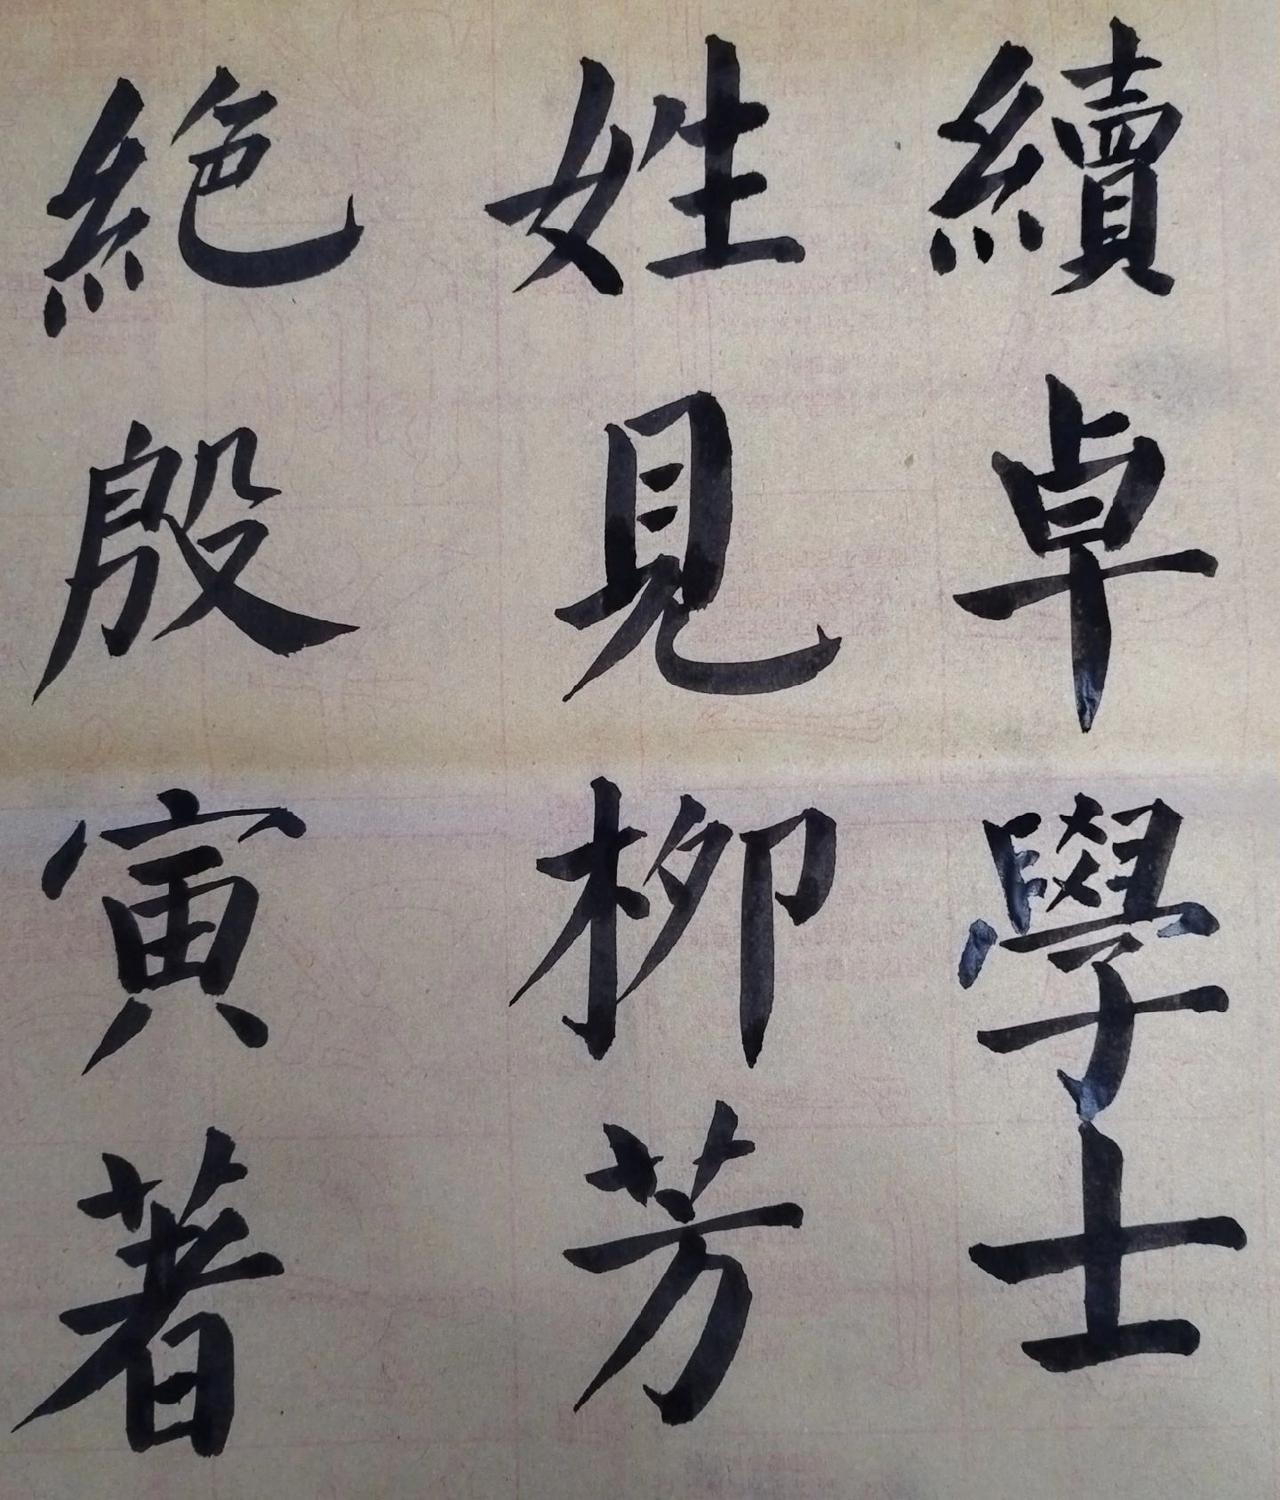 續卓學士
姓見柳芳
絕殷寅著